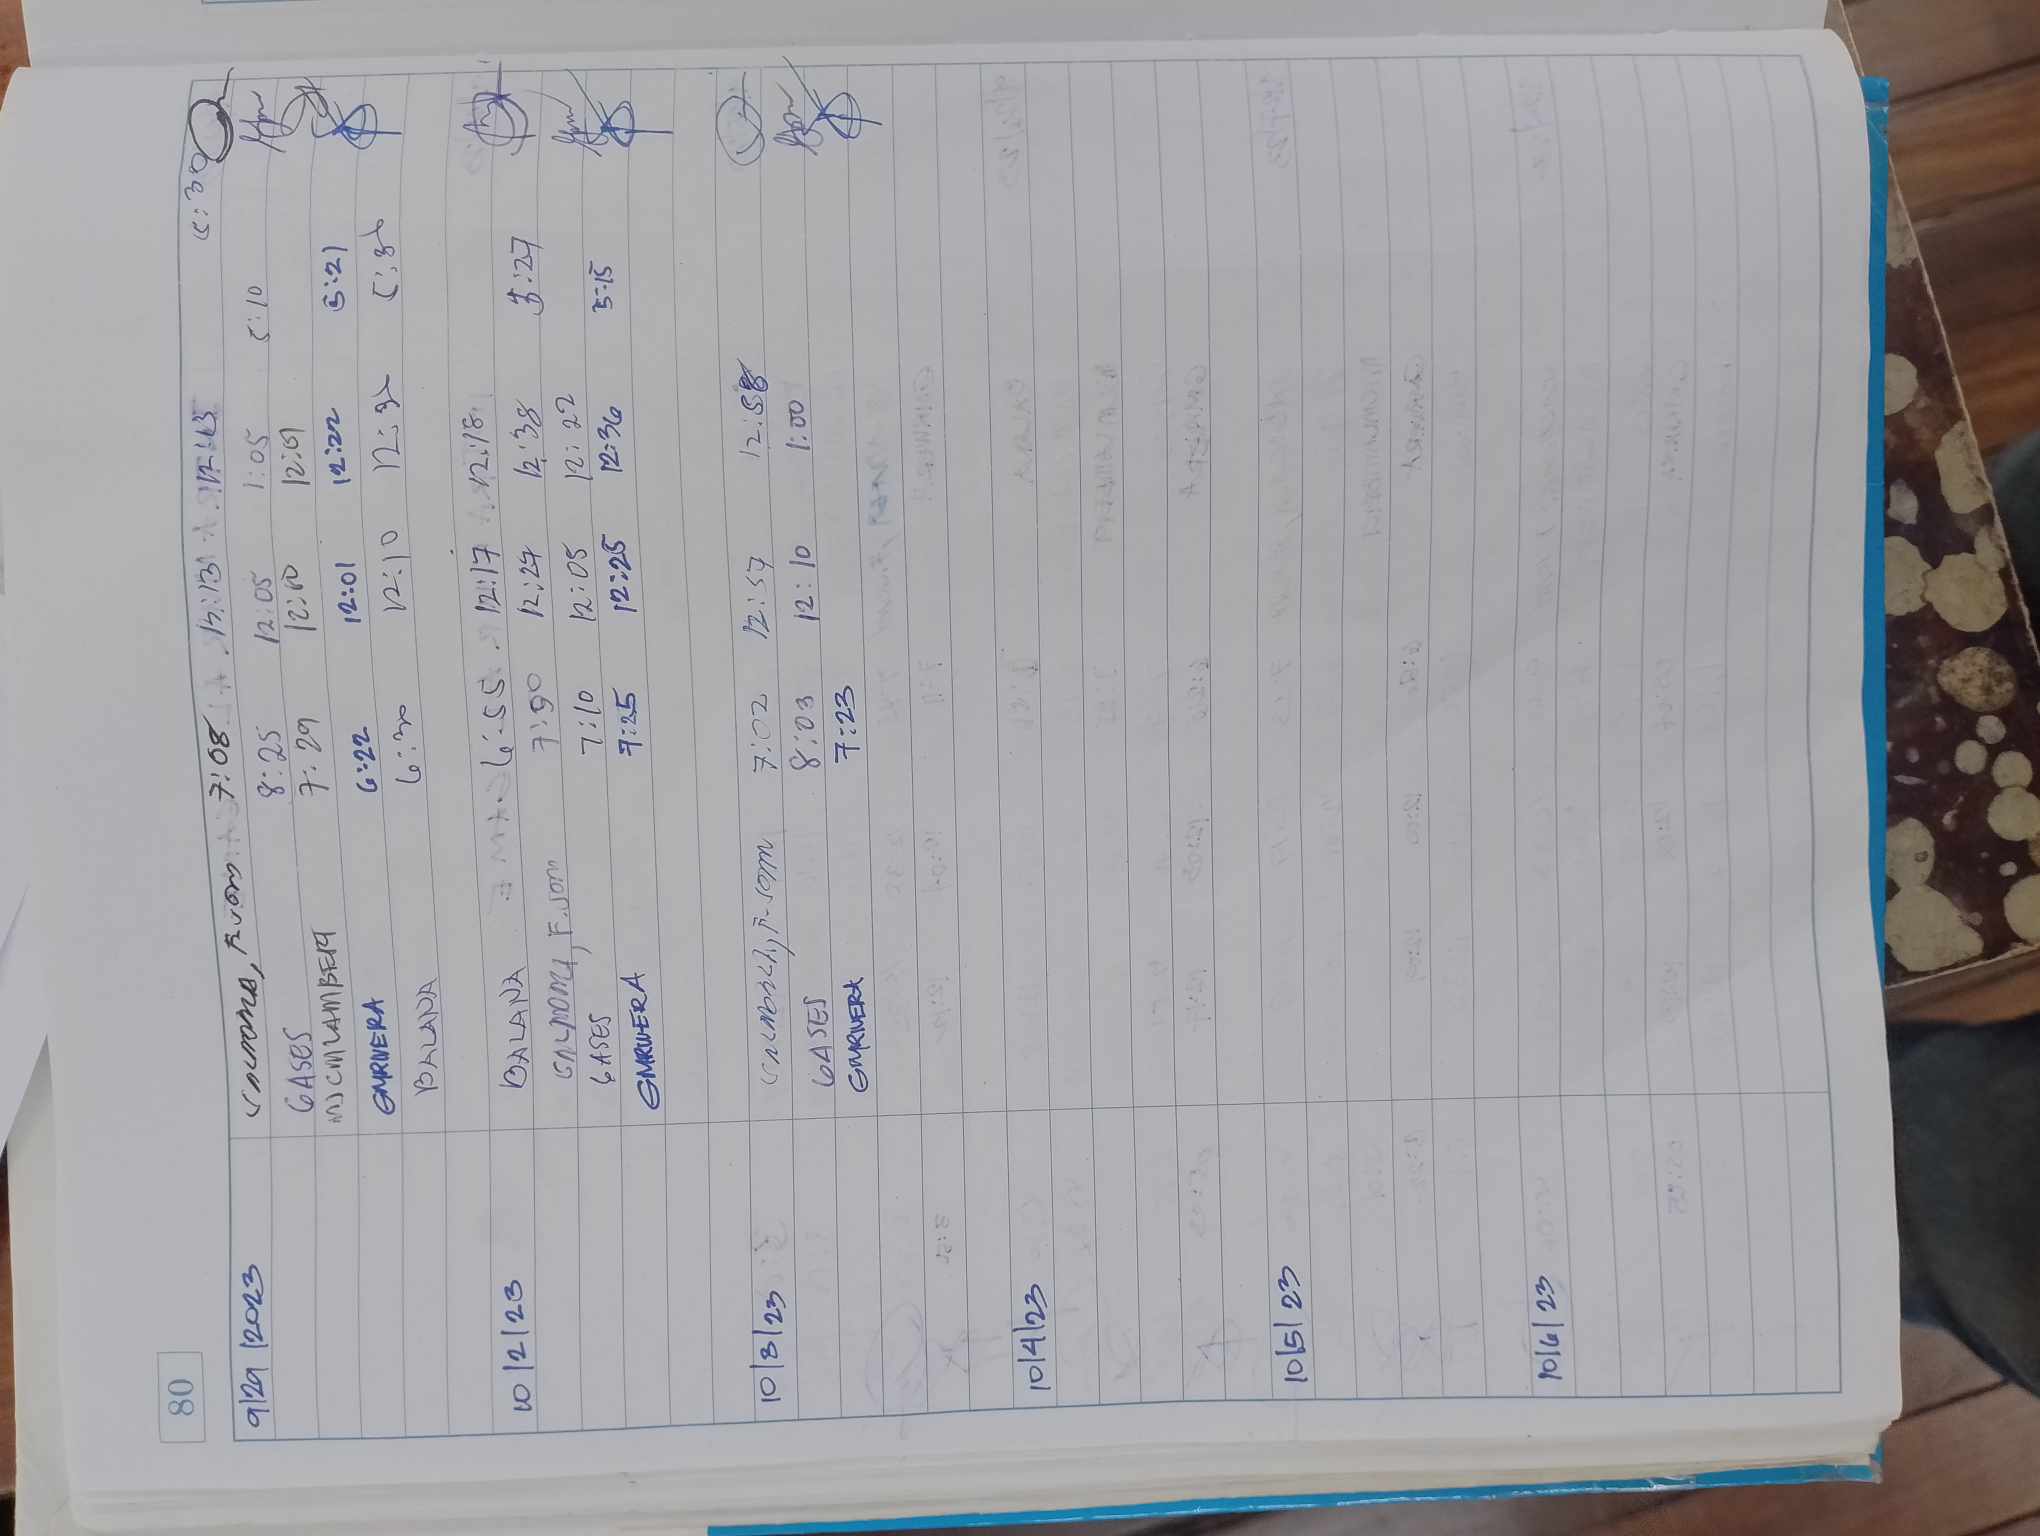 80
9/29/2023 7:08 12:13 5:30
GASES 8:25 12:05 1:05 5:10
MJCMLAMBERT 7:29 12:00 12:01
GMRIVERA 6:22 12:01 12:22 5:21
BALANA 6:30 12:10 12:32 5:36
10/2/23 BALANA 6:55 12:17 12:18
F.Jom 12:27 12:38 5:27
GASES 7:10 12:05 12:22
GMRIVERA 7:25 12:25 12:36 5:15
10/3/23 7:02 12:57 12:58
GASES 8:03 12:10 1:00
GMRIVERA 7:23
10/4/23
10/5/23
10/6/23